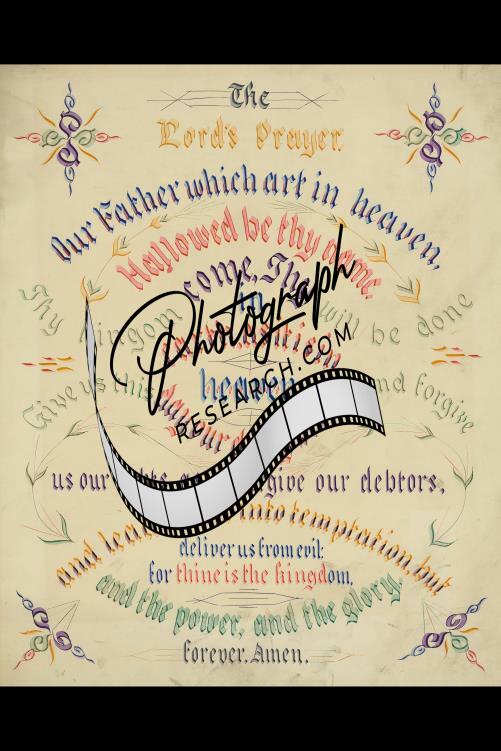 The
Lord's Prayer.
Our Father which art in heaven,
Hallowed be thy name.
Thy kingdom come. Thy will be done
in
heaven
Give us this day our and forgive
us our give our debtors,
and lead into temptation, but
deliver us from evil:
for thine is the kingdom,
and the power, and the glory,
forever. Amen.
Photograph
RESEARCH.COM